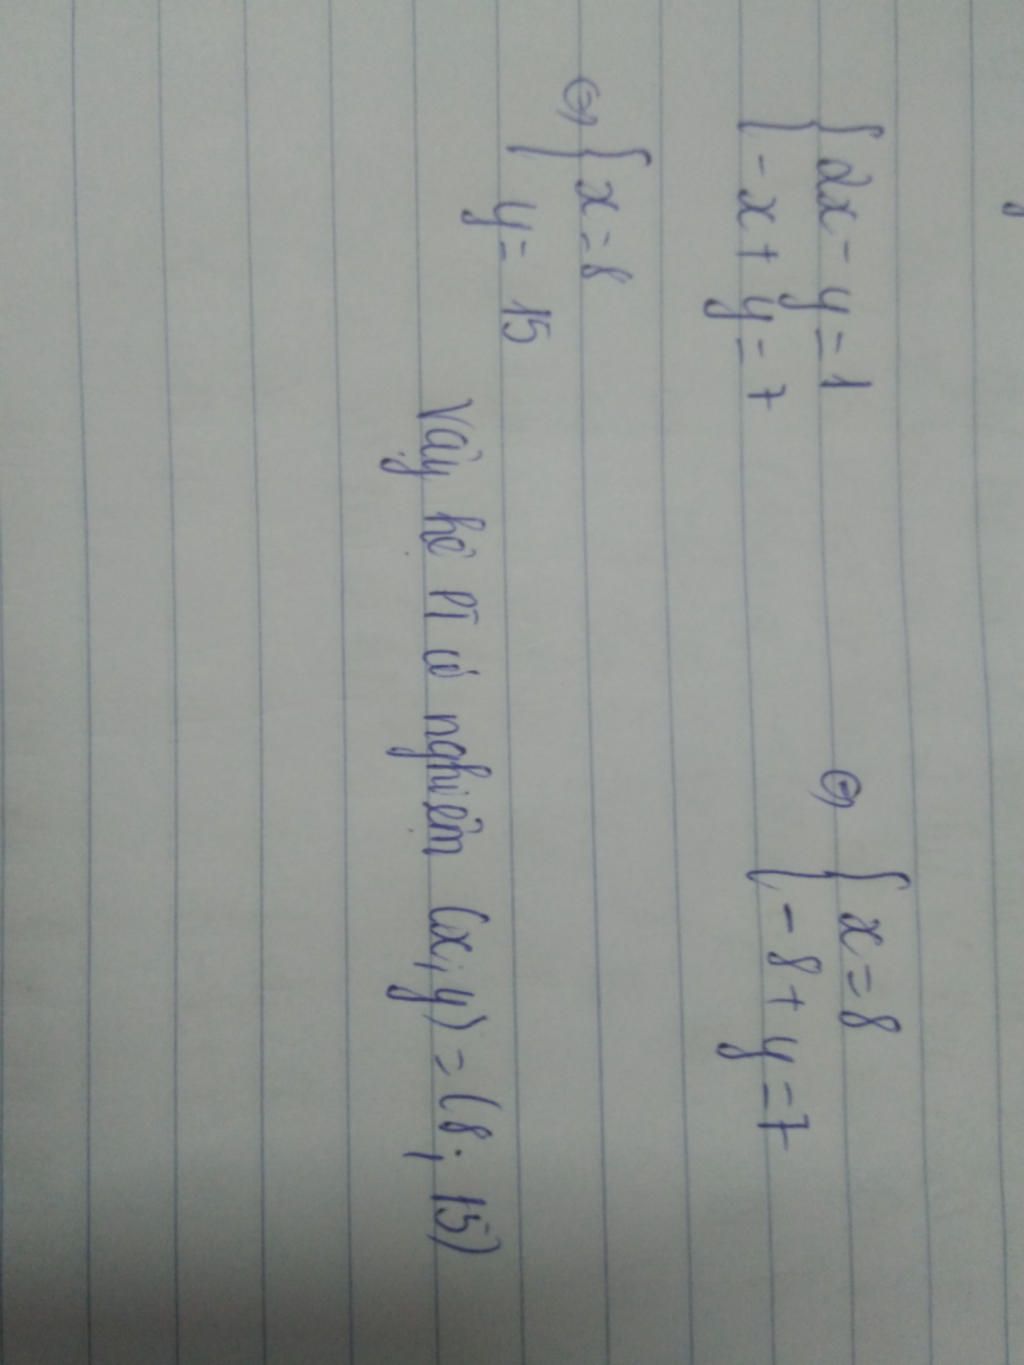 { 2x - y = 1
- x + y = 7
⇔ { x = 8
- 8 + y = 7
⇔ { x = 8
y = 15
Vậy hệ PT có nghiệm (x; y) = (8; 15)